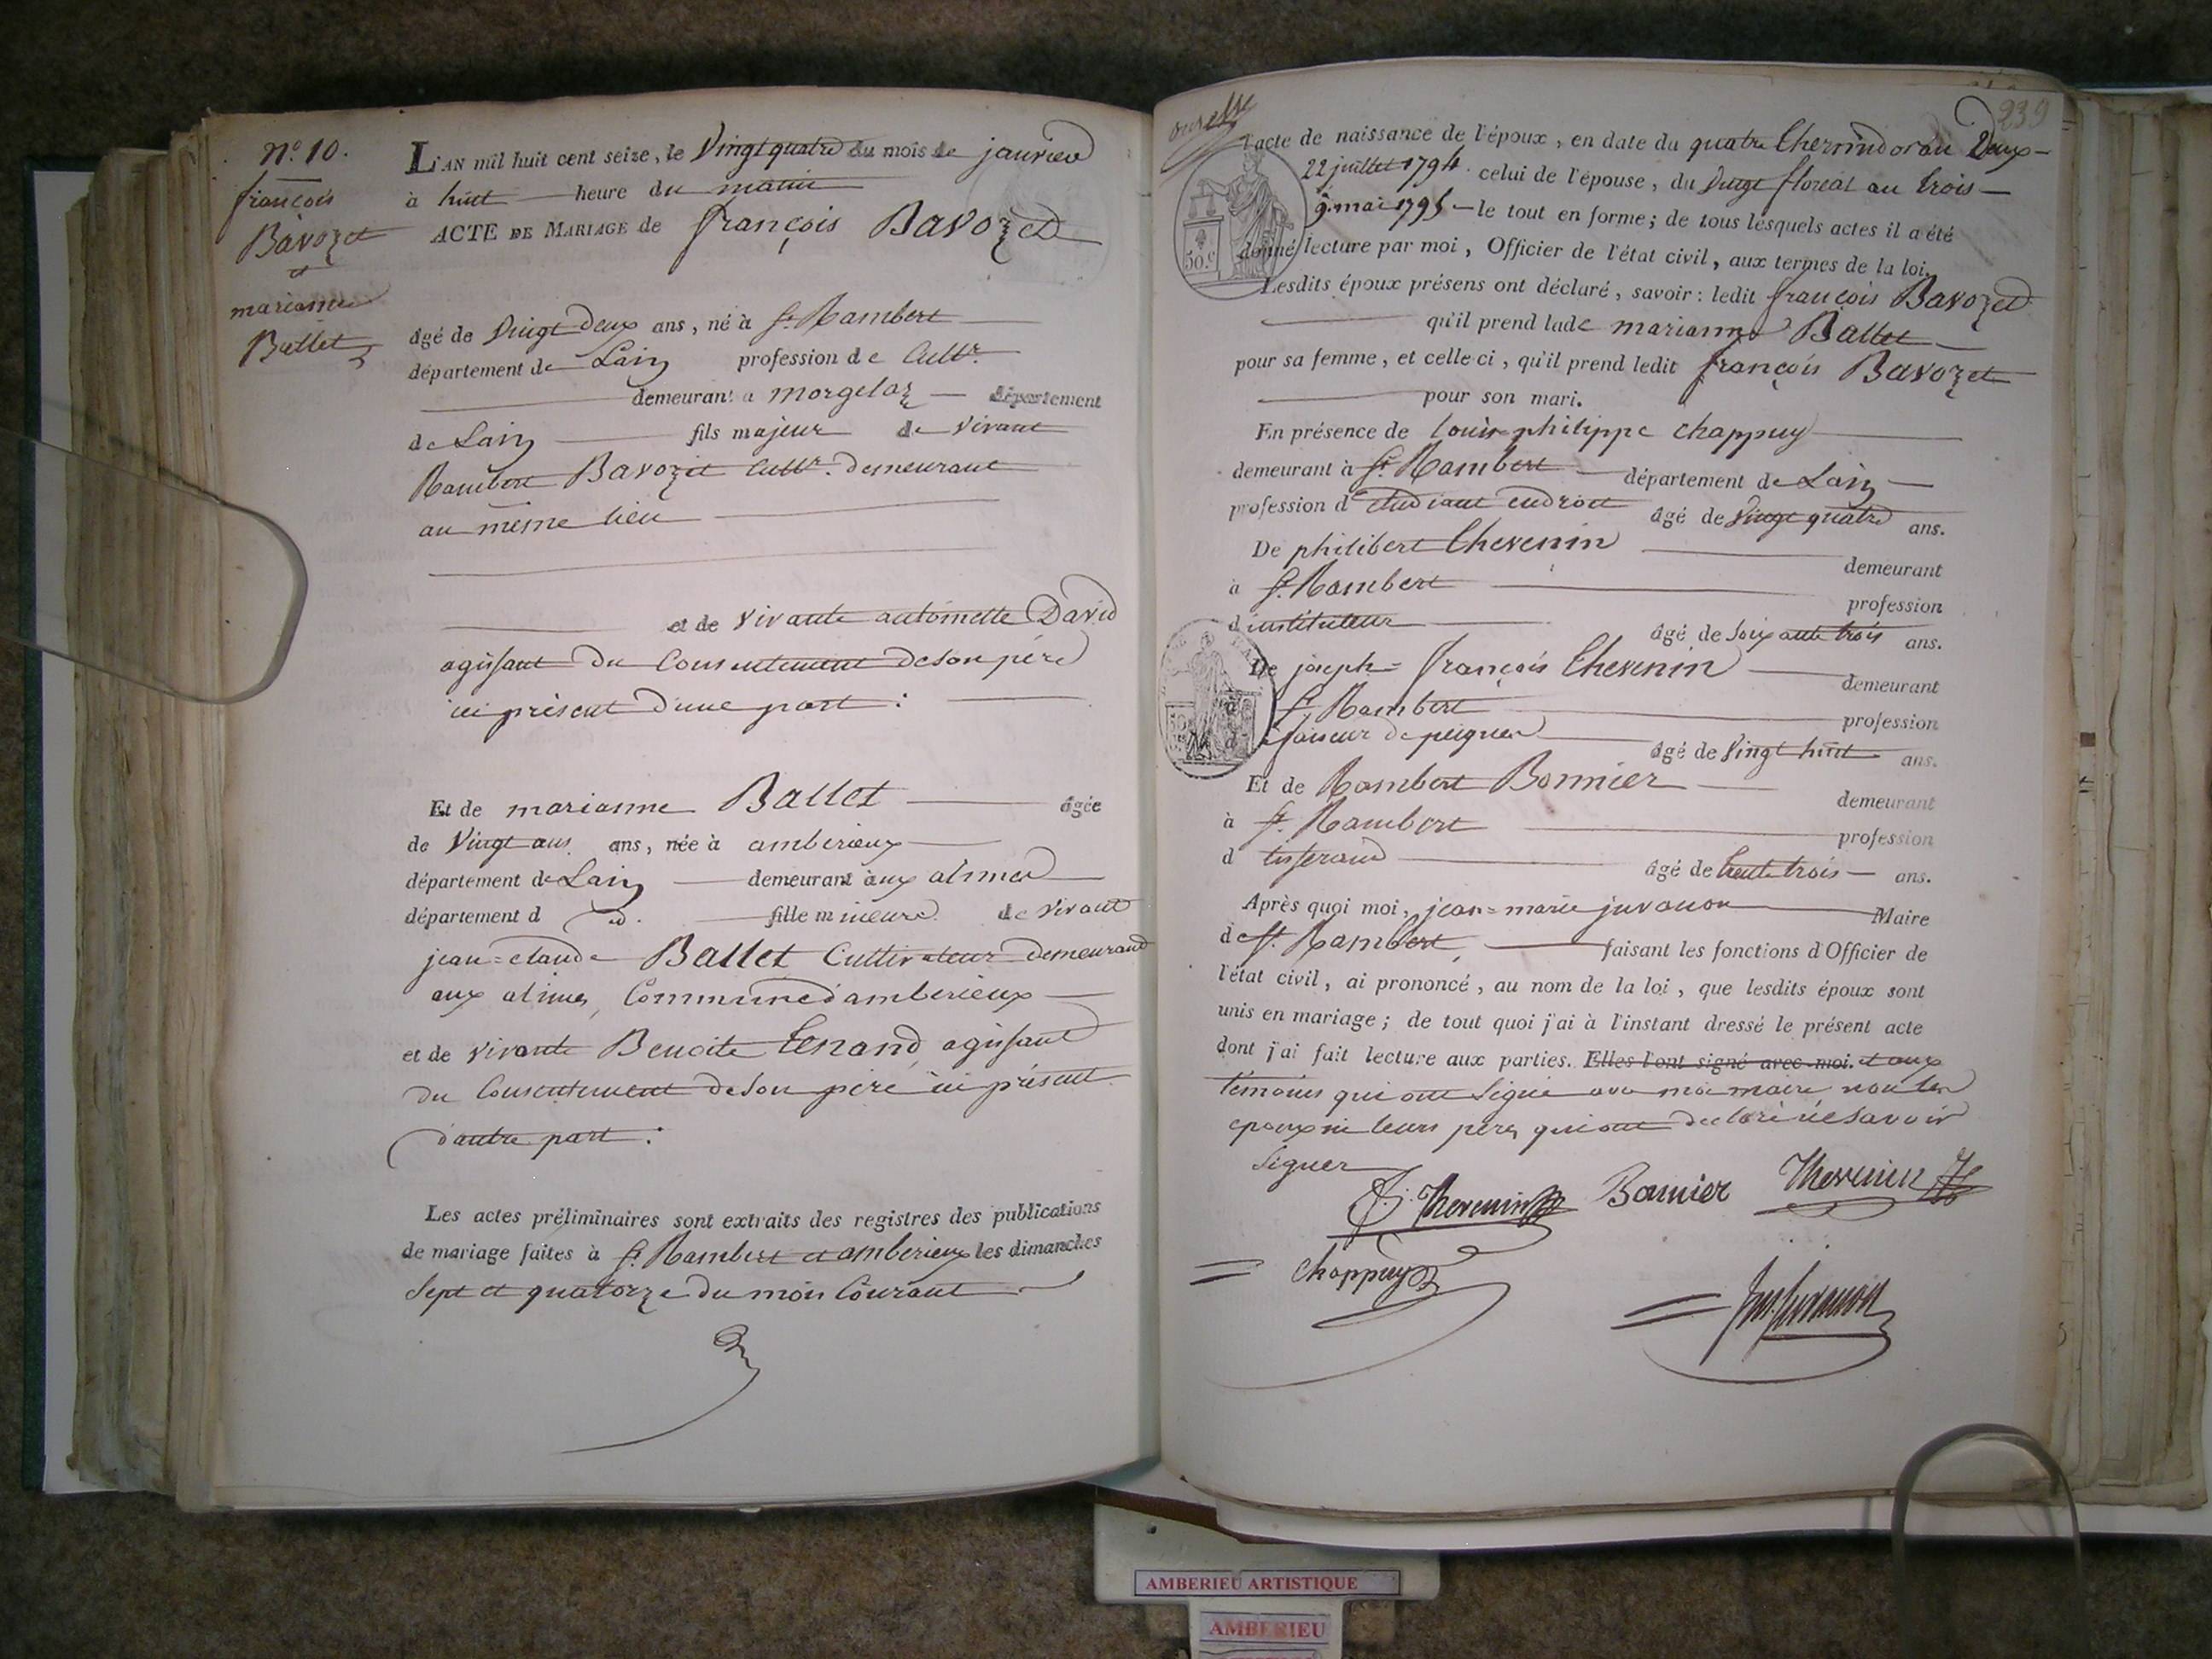 n.° 10.
françois
Bavozet
et
marianne
Ballet
L'AN mil huit cent seize, le Vingt quatre du mois de janvier
à huit heure du matin
ACTE DE MARIAGE de françois Bavozet
âgé de Vingt Deux ans, né à St. Rambert
département de Lain profession de Cultr.
demeurant a morgelaz département
de Lain fils majeur de vivant
Rambert Bavozet Cultr. demeurant
au même lieu
et de vivante antoinette David
agissant du Consentement de son père
ici présent d'une part :
Et de marianne Ballet âgée
de Vingt ans ans, née à amberieux
département de Lain demeurant aux alimes
département d id. fille mineure de vivant
jean=claude Ballet Cultivateur demeurant
aux alimes, Commune d'amberieux
et de vivante Benoite Tenand, agissant
du Consentement de son père ici présent
d'autre part :
Les actes préliminaires sont extraits des registres des publications
de mariage faites à St. Rambert et amberieux les dimanches
Sept et quatorze du mois Courant
239
l'acte de naissance de l'époux, en date du quatre Thermidor an Deux
22 juillet 1794. celui de l'épouse, du Vingt floréal an trois
9. mai 1795 le tout en forme; de tous lesquels actes il a été
donné lecture par moi, Officier de l'état civil, aux termes de la loi.
Lesdits époux présens ont déclaré, savoir : ledit françois Bavozet
qu'il prend lade marianne Ballet
pour sa femme, et celle-ci, qu'il prend ledit françois Bavozet
pour son mari.
50.c
En présence de Louis-philippe chappuy
demeurant à St. Rambert département de Lain
profession d'Etudiant en droit âgé de Vingt quatre ans.
De philibert Thevenin demeurant
à St. Rambert profession
d'instituteur âgé de Soixante trois ans.
De joseph=françois Thevenin demeurant
à St. Rambert profession
de faiseur de peignes âgé de Vingt huit ans.
Et de Rambert Bonnier demeurant
à St. Rambert profession
d tisserand âgé de trente trois ans.
Après quoi moi, jean=marie juvanon Maire
de St. Rambert, faisant les fonctions d'Officier de
l'état civil, ai prononcé, au nom de la loi, que lesdits époux sont
unis en mariage; de tout quoi j'ai à l'instant dressé le présent acte
dont j'ai fait lecture aux parties. Elles l'ont signé avec moi. et aux
témoins qui ont signé avec moi maire non les
epoux ni leurs pères qui ont déclaré ne savoir
signer
f. Thevenin Bonnier Thevenin
chappuy
jm. juvanon
AMBERIEU ARTISTIQUE
AMBERIEU